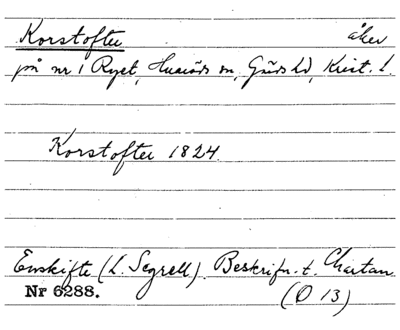 Korstofter åker
på nr 1 Ryet, Huaröds sn, Gärds hd, Krist. l.
Korstofter 1824.
Enskifte (L. Segrell). Beskrifn. t. Chartan
Nr 6288. (O 13)